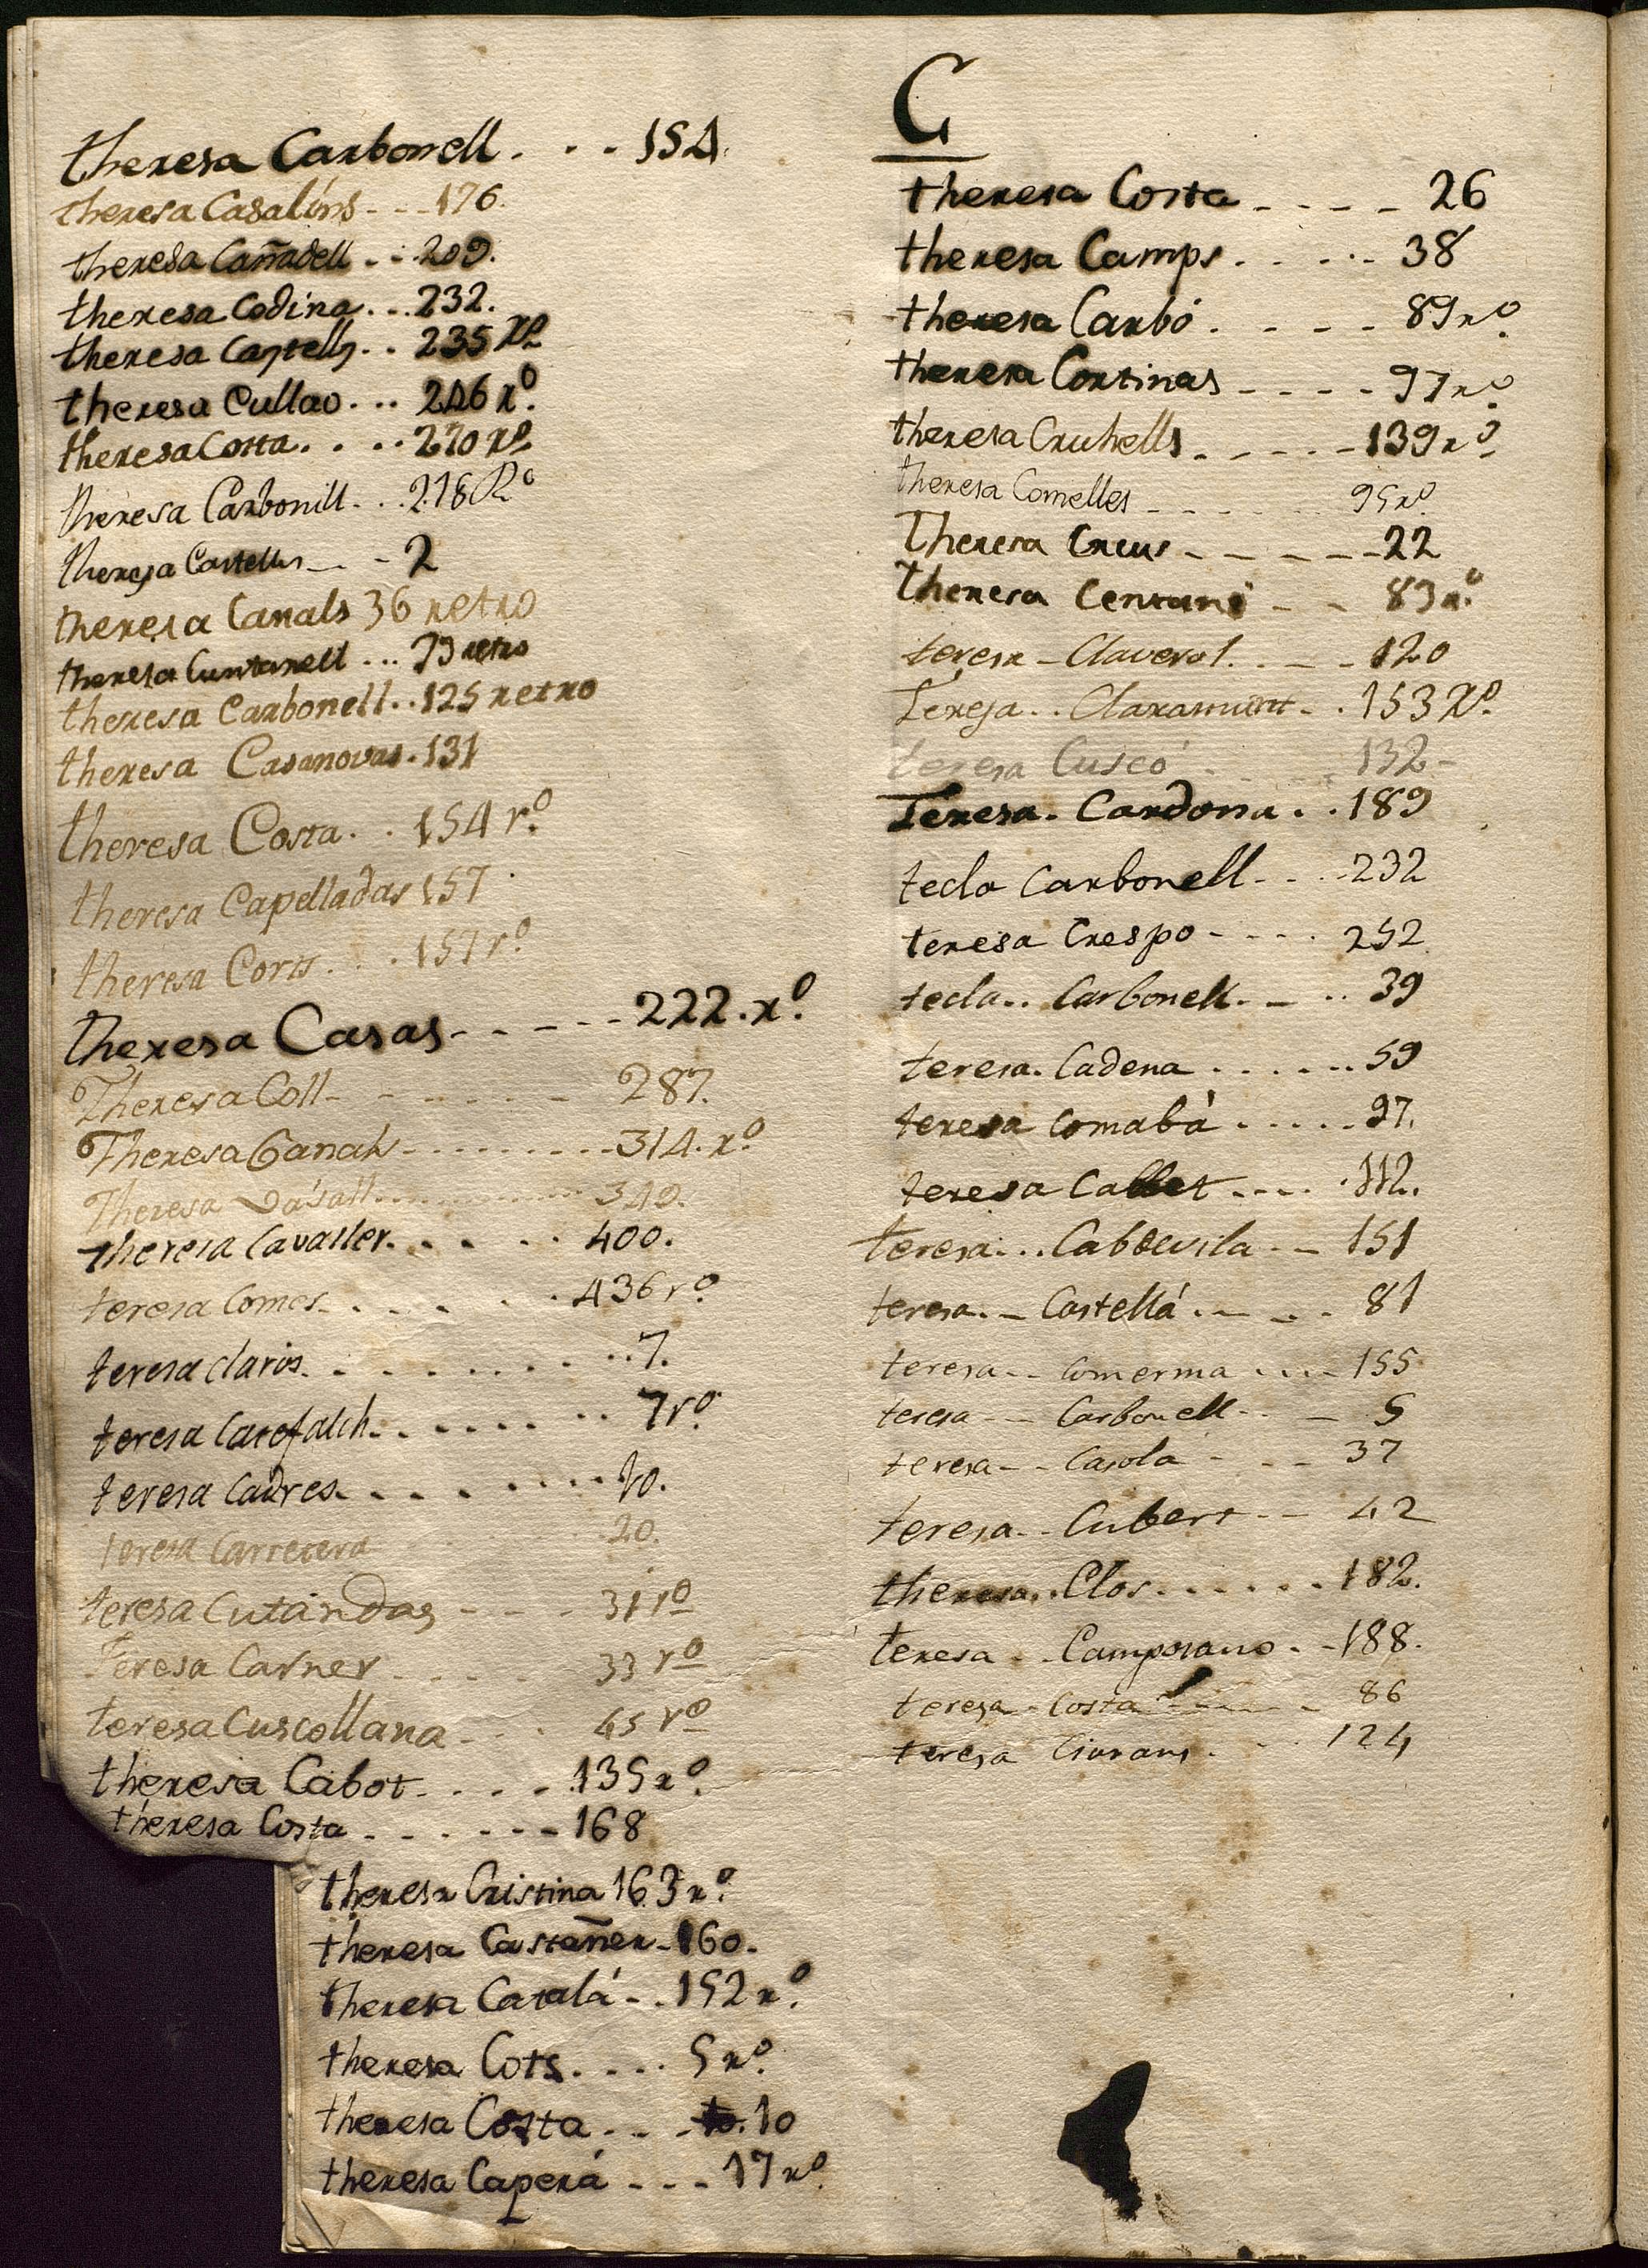 theresa Carbonell . . . 154.
theresa Casalins - - - 176.
theresa Cañadell . . . 209.
theresa Codina . . . 232.
theresa Castells . . 235 rº
theresa Cullao . . . 246 rº.
theresa Costa . . . . 270 rº
theresa Carbonill . . . 218 Rº
theresa Castells - . - 2
theresa Canals 36 retro
theresa Cuntanell . . . 79 retro
theresa Carbonell . . 125 retro
theresa Casanovas . 131
theresa Costa . . 154 rº.
theresa Capelladas 157 .
theresa Corts . . . 157 rº.
theresa Casas - - - - - 222. rº.
Theresa Coll - - - - - - 287.
Theresa Canals - - - - - - - 314. rº.
Theresa - - - - - - - 340.
theresa Cavaller . . . . . 400.
teresa Comes . . . . . . 436 rº.
teresa claris . . . . . . . . 7.
teresa . . . . . . . 7 rº.
teresa Cadres . . . . . . . 10.
teresa Carretera 20.
teresa Cutandas - - - - 31 rº
Teresa Carner - - - 33 rº
teresa Cuscollana - - 45 rº
theresa Cabot - - - - 135 rº.
theresa Costa - - - - - - 168
theresa Cristina 163 rº.
theresa Castañer - 160.
theresa Catalá - . 152 rº.
theresa Cots . . . . 5 rº.
theresa Costa . . . - 10
theresa Caperá - - - 17 rº.
C
theresa Costa - - - - 26
theresa Camps . . . . . 38
theresa Carbó . . - - - 89 rº.
theresa Cortinas - - - - - 97 rº.
theresa Cruhells . - - - - 139 rº.
theresa Comelles - - - - - 95 rº.
Theresa Creus - - - - - 22
theresa Centani - - 83 rº.
teresa - Claverol . . - - 120
Teresa . . Claramunt - . 153 Rº.
teresa Cuscó - - 132 -
Teresa . Cardona . . 189
tecla Carbonell - . . - 232
teresa Crespo - - - . 252
tecla . . Carbonell . - . . 39
teresa . Cadena . . . . . . 59
teresa Comabà . . . . . 97.
teresa Callet . . . . 112.
teresa . . . Cabdevila - - 151
teresa . - Castellá . - - . 81
teresa - - Comerma . . . - 155
teresa - - Carbonell - . - 5
teresa - - Casola - - - 37
teresa - - Cubert - - 42
theresa . . Clos . . . . . . 182.
teresa - . Camposano . - 188.
teresa - Costa - - - 86
teresa Ciurans . . . 124